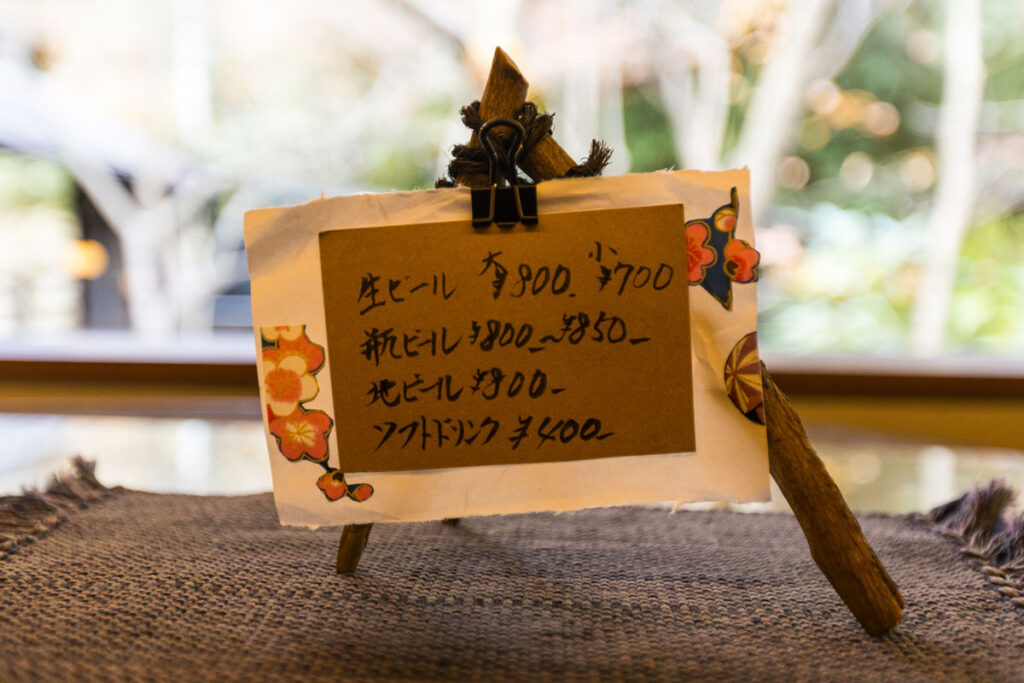 生ビール 大¥800. 小¥700
瓶ビール ¥800-~¥850-
地ビール ¥800-
ソフトドリンク ¥400-